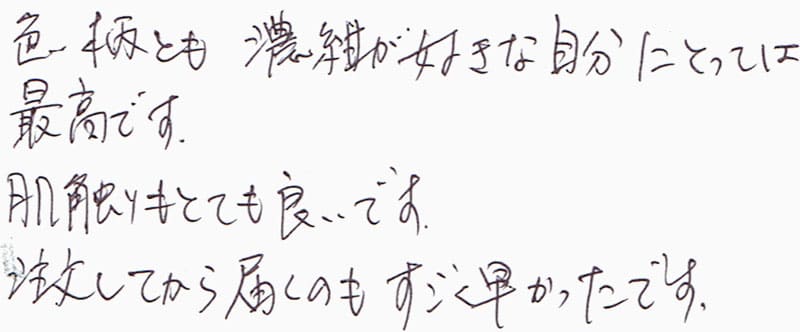 色・柄とも 濃紺が好きな自分にとっては
最高です.
肌触りもとても良いです.
注文してから届くのもすごく早かったです.